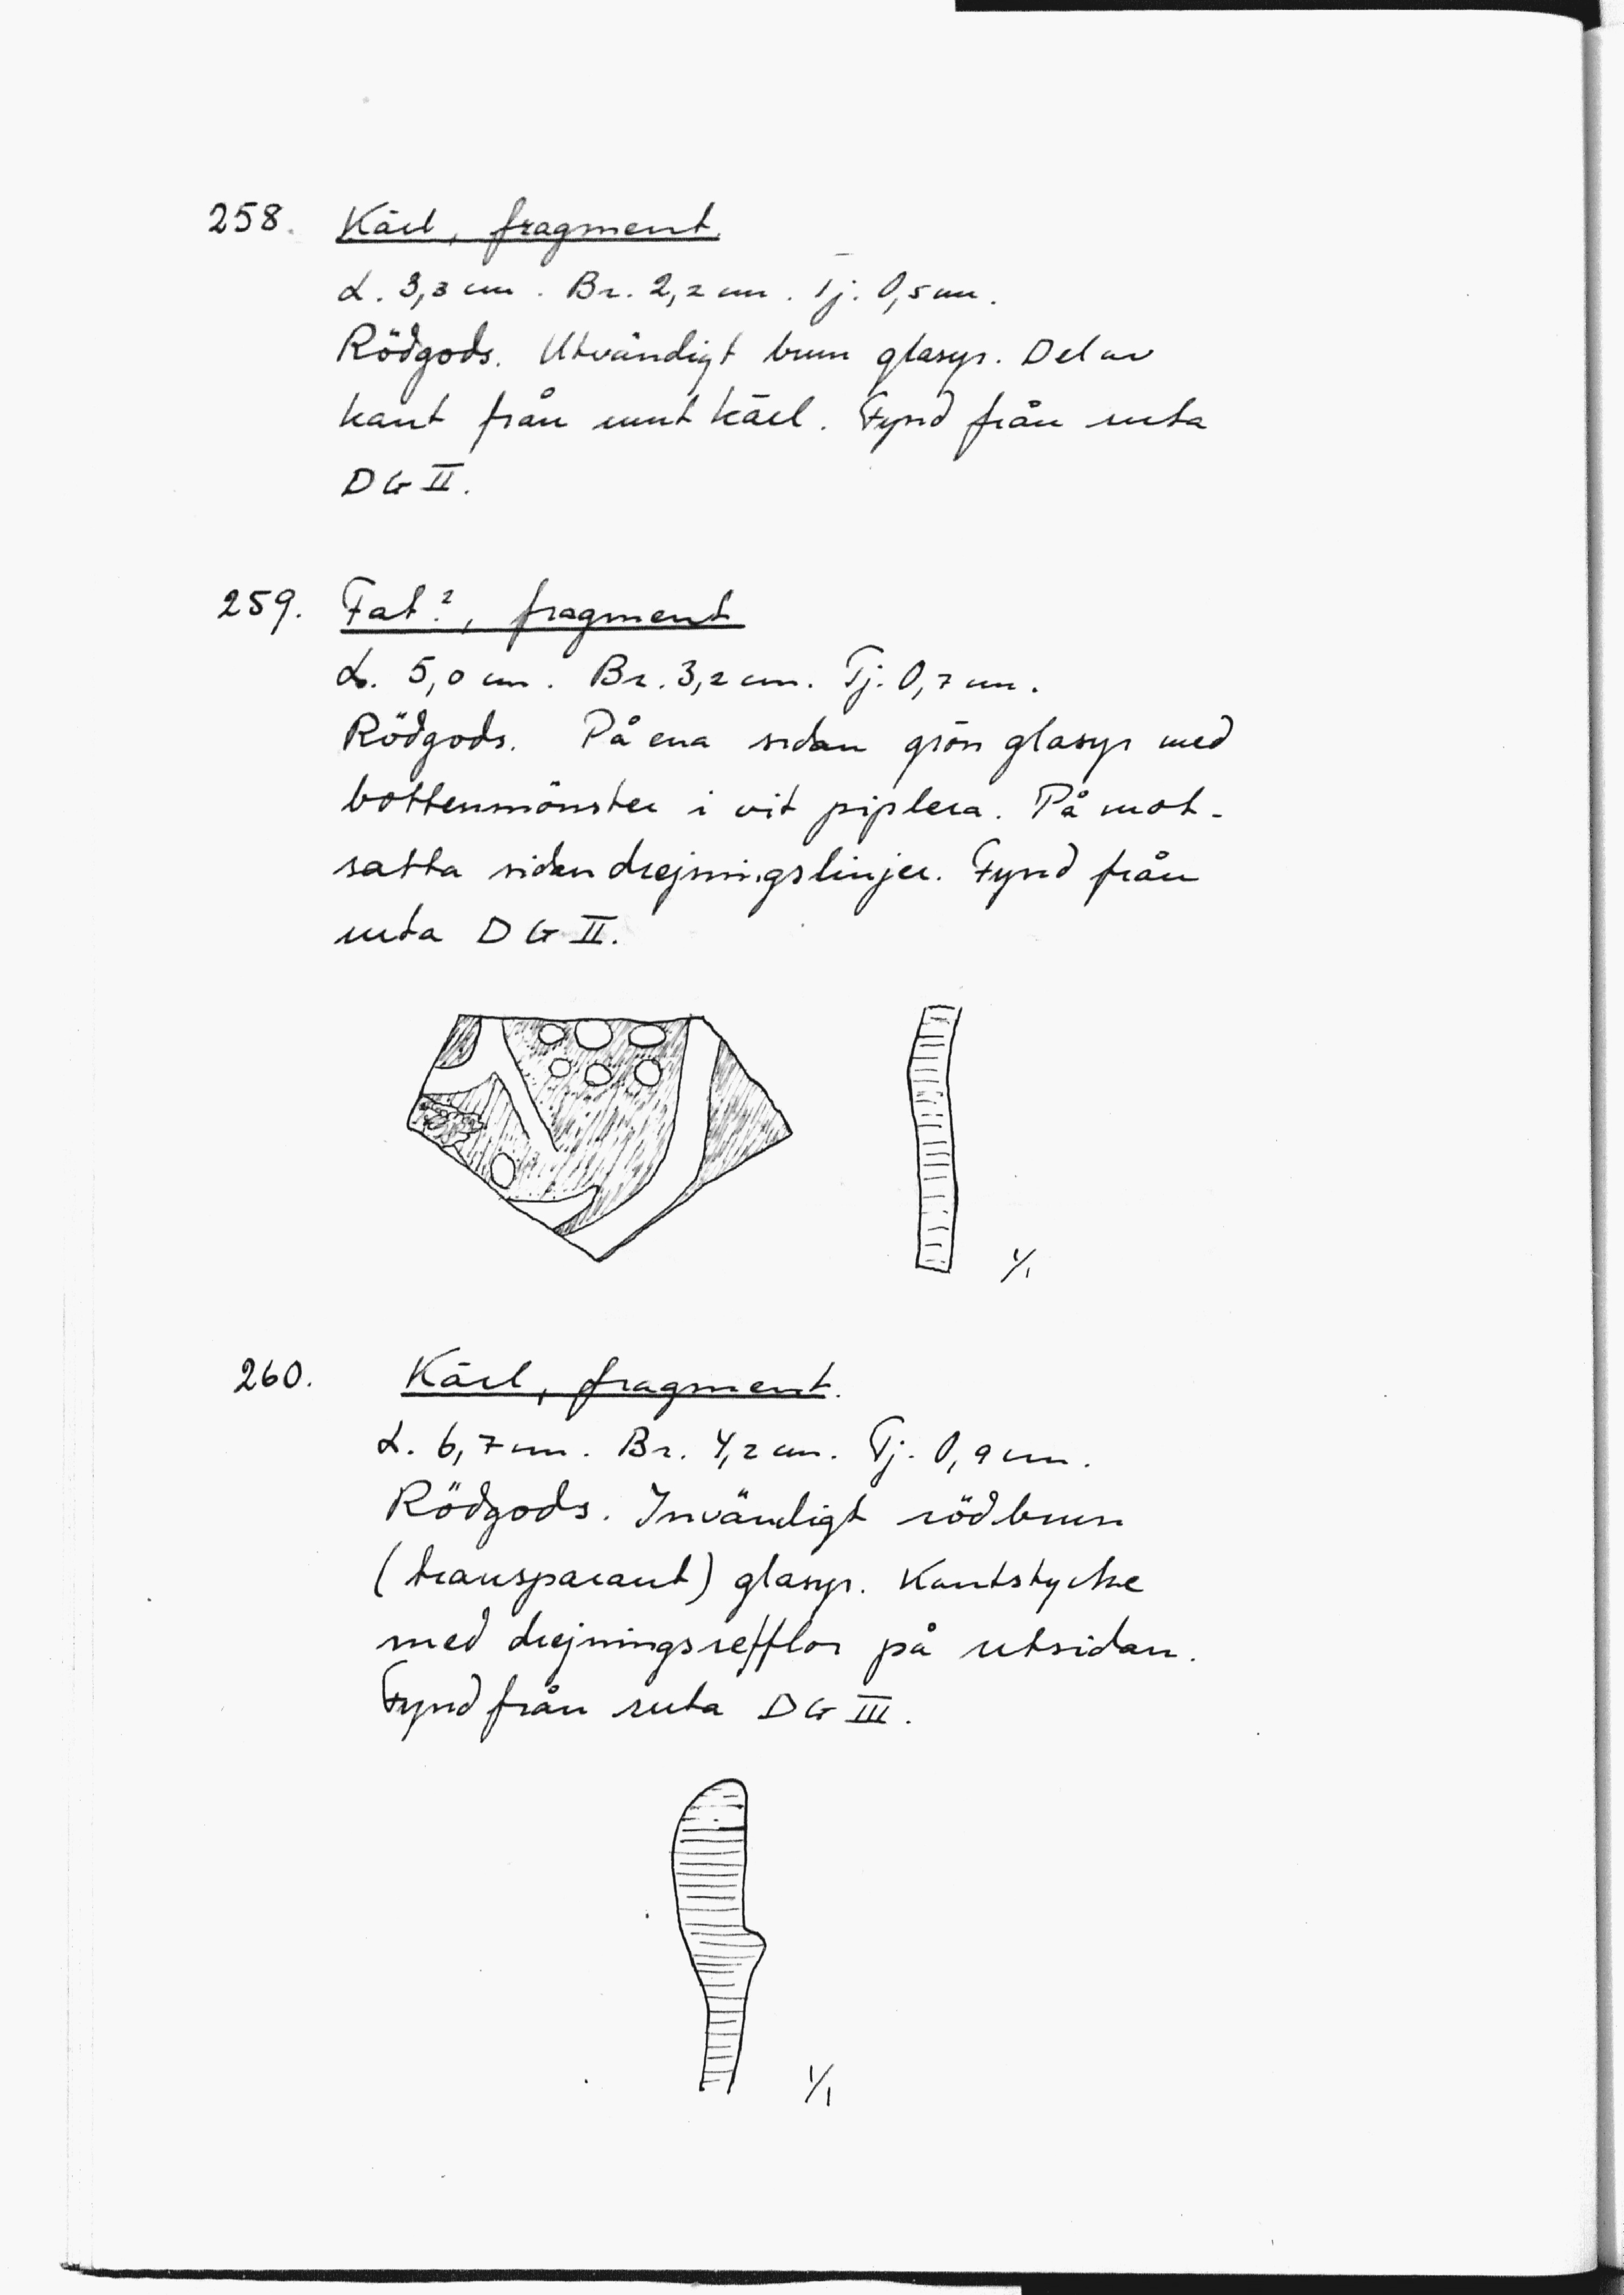 258. Kärl, fragment.
L. 3,3 cm. Br. 2,2 cm. Tj. 0,5 cm.
Rödgods. Utvändigt brun glasyr. Del av
kant från runt kärl. Fynd från ruta
DG II.
259. Fat?, fragment
L. 5,0 cm. Br. 3,2 cm. Tj. 0,7 cm.
Rödgods. På ena sidan grön glasyr med
bottenmönster i vit piplera. På mot-
satta sidan drejningslinjer. Fynd från
ruta DG II.
1/1
260. Kärl, fragment.
L. 6,7 cm. Br. 4,2 cm. Tj. 0,9 cm.
Rödgods. Invändigt rödbrun
(transparant) glasyr. Kantstycke
med drejningsrefflor på utsidan.
Fynd från ruta DG III.
1/1